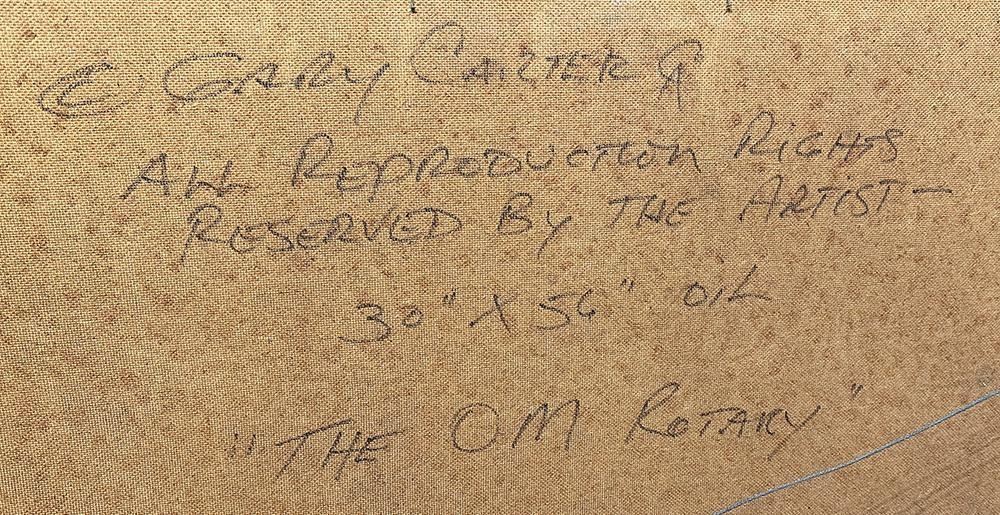 © GARY CARTER CA
ALL REPRODUCTION RIGHTS
RESERVED BY THE ARTIST—
30" X 56" OIL
"THE OM ROTARY"